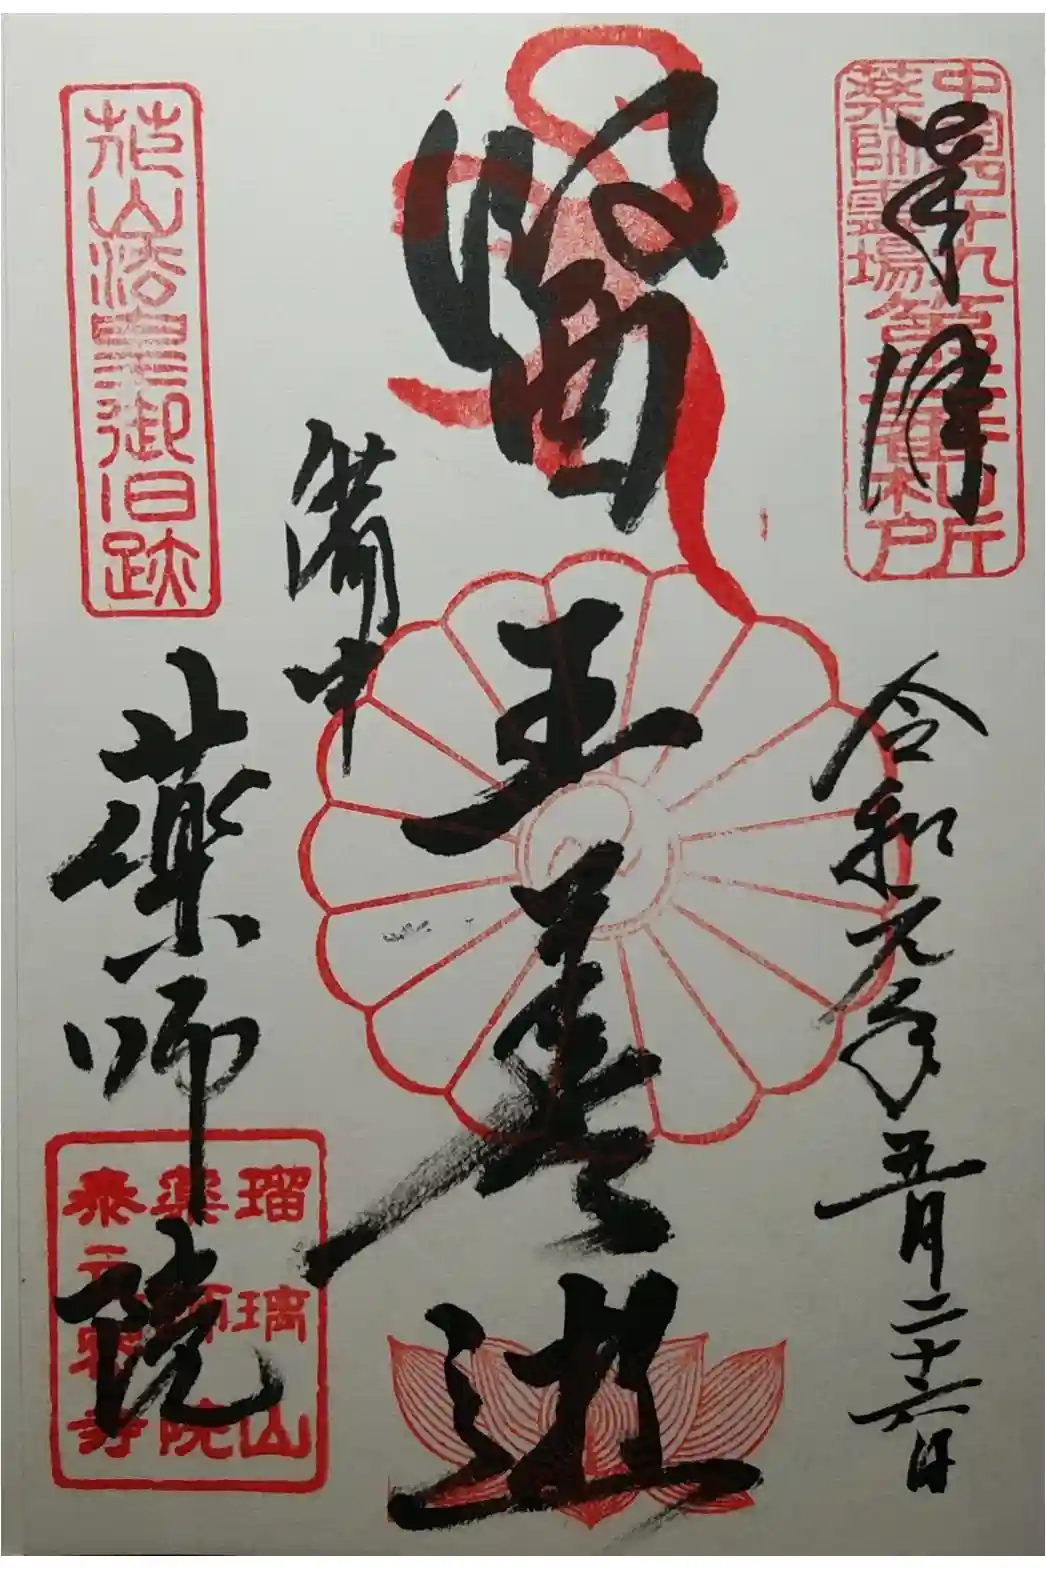 奉拝
中國四十九
薬師霊場
第二番札所
令和元年五月二十六日
醫王善逝
備中
薬師院
花山法皇御旧跡
瑠璃山
薬師院
泰立寺